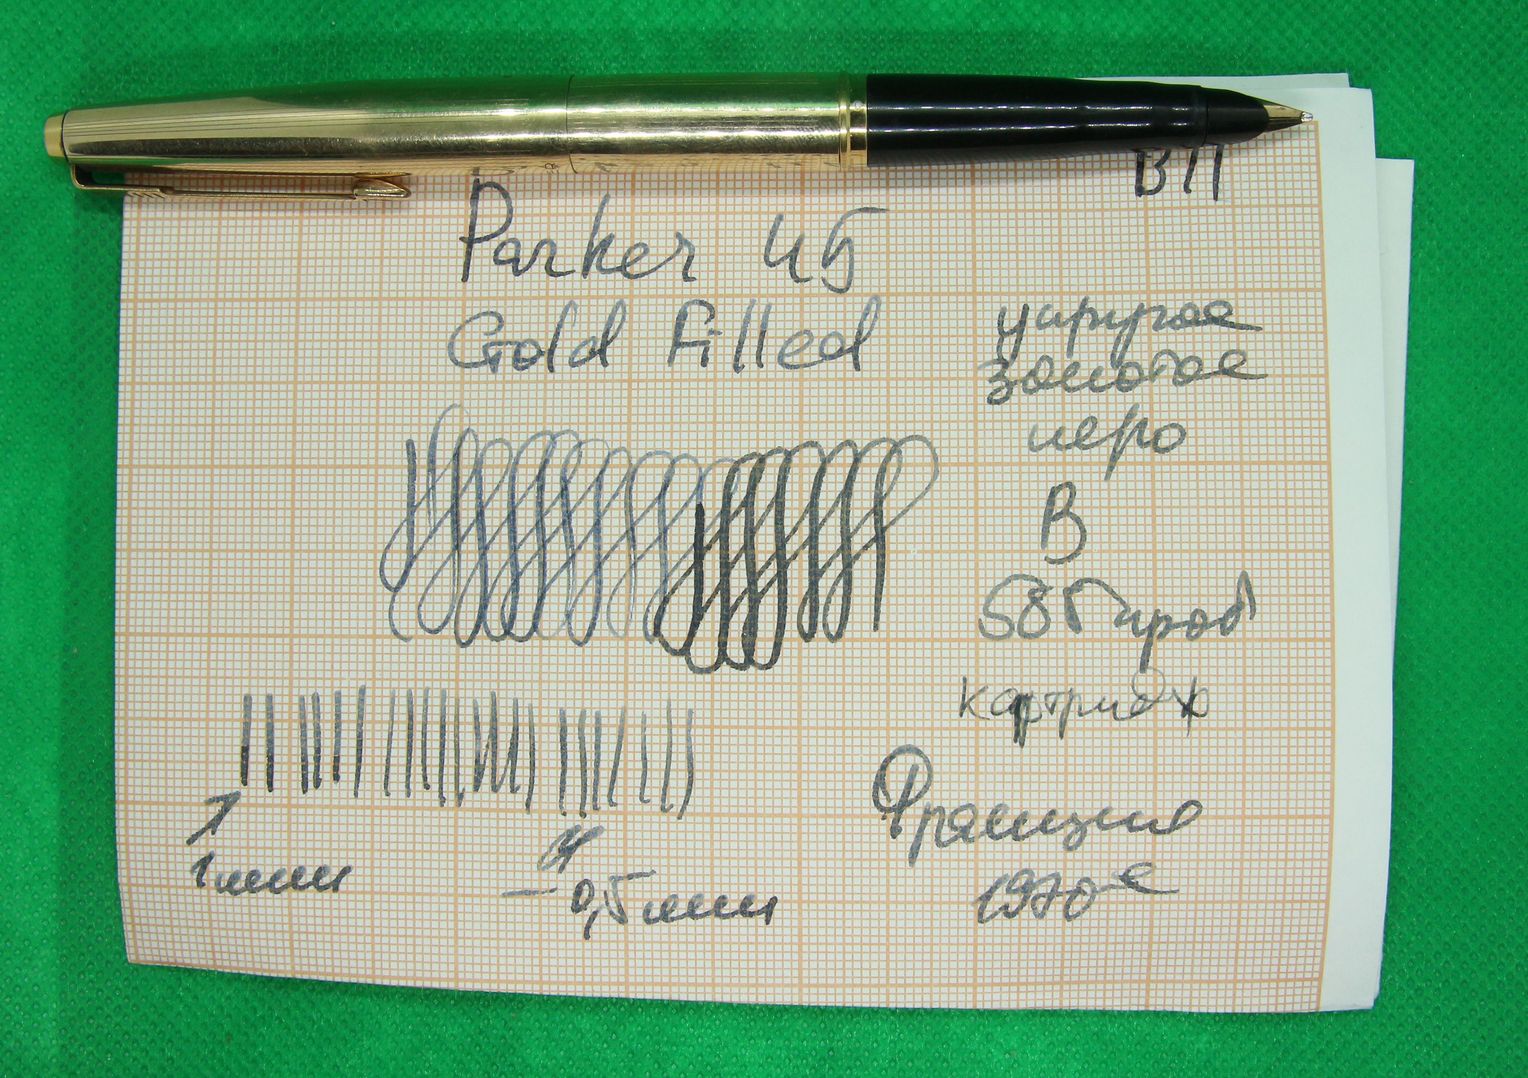 ВП
Parker 45
Gold Filled
упругое
золотое
перо
B
585 проб
картридж
Франция
1970-е
1 мм
0,5 мм